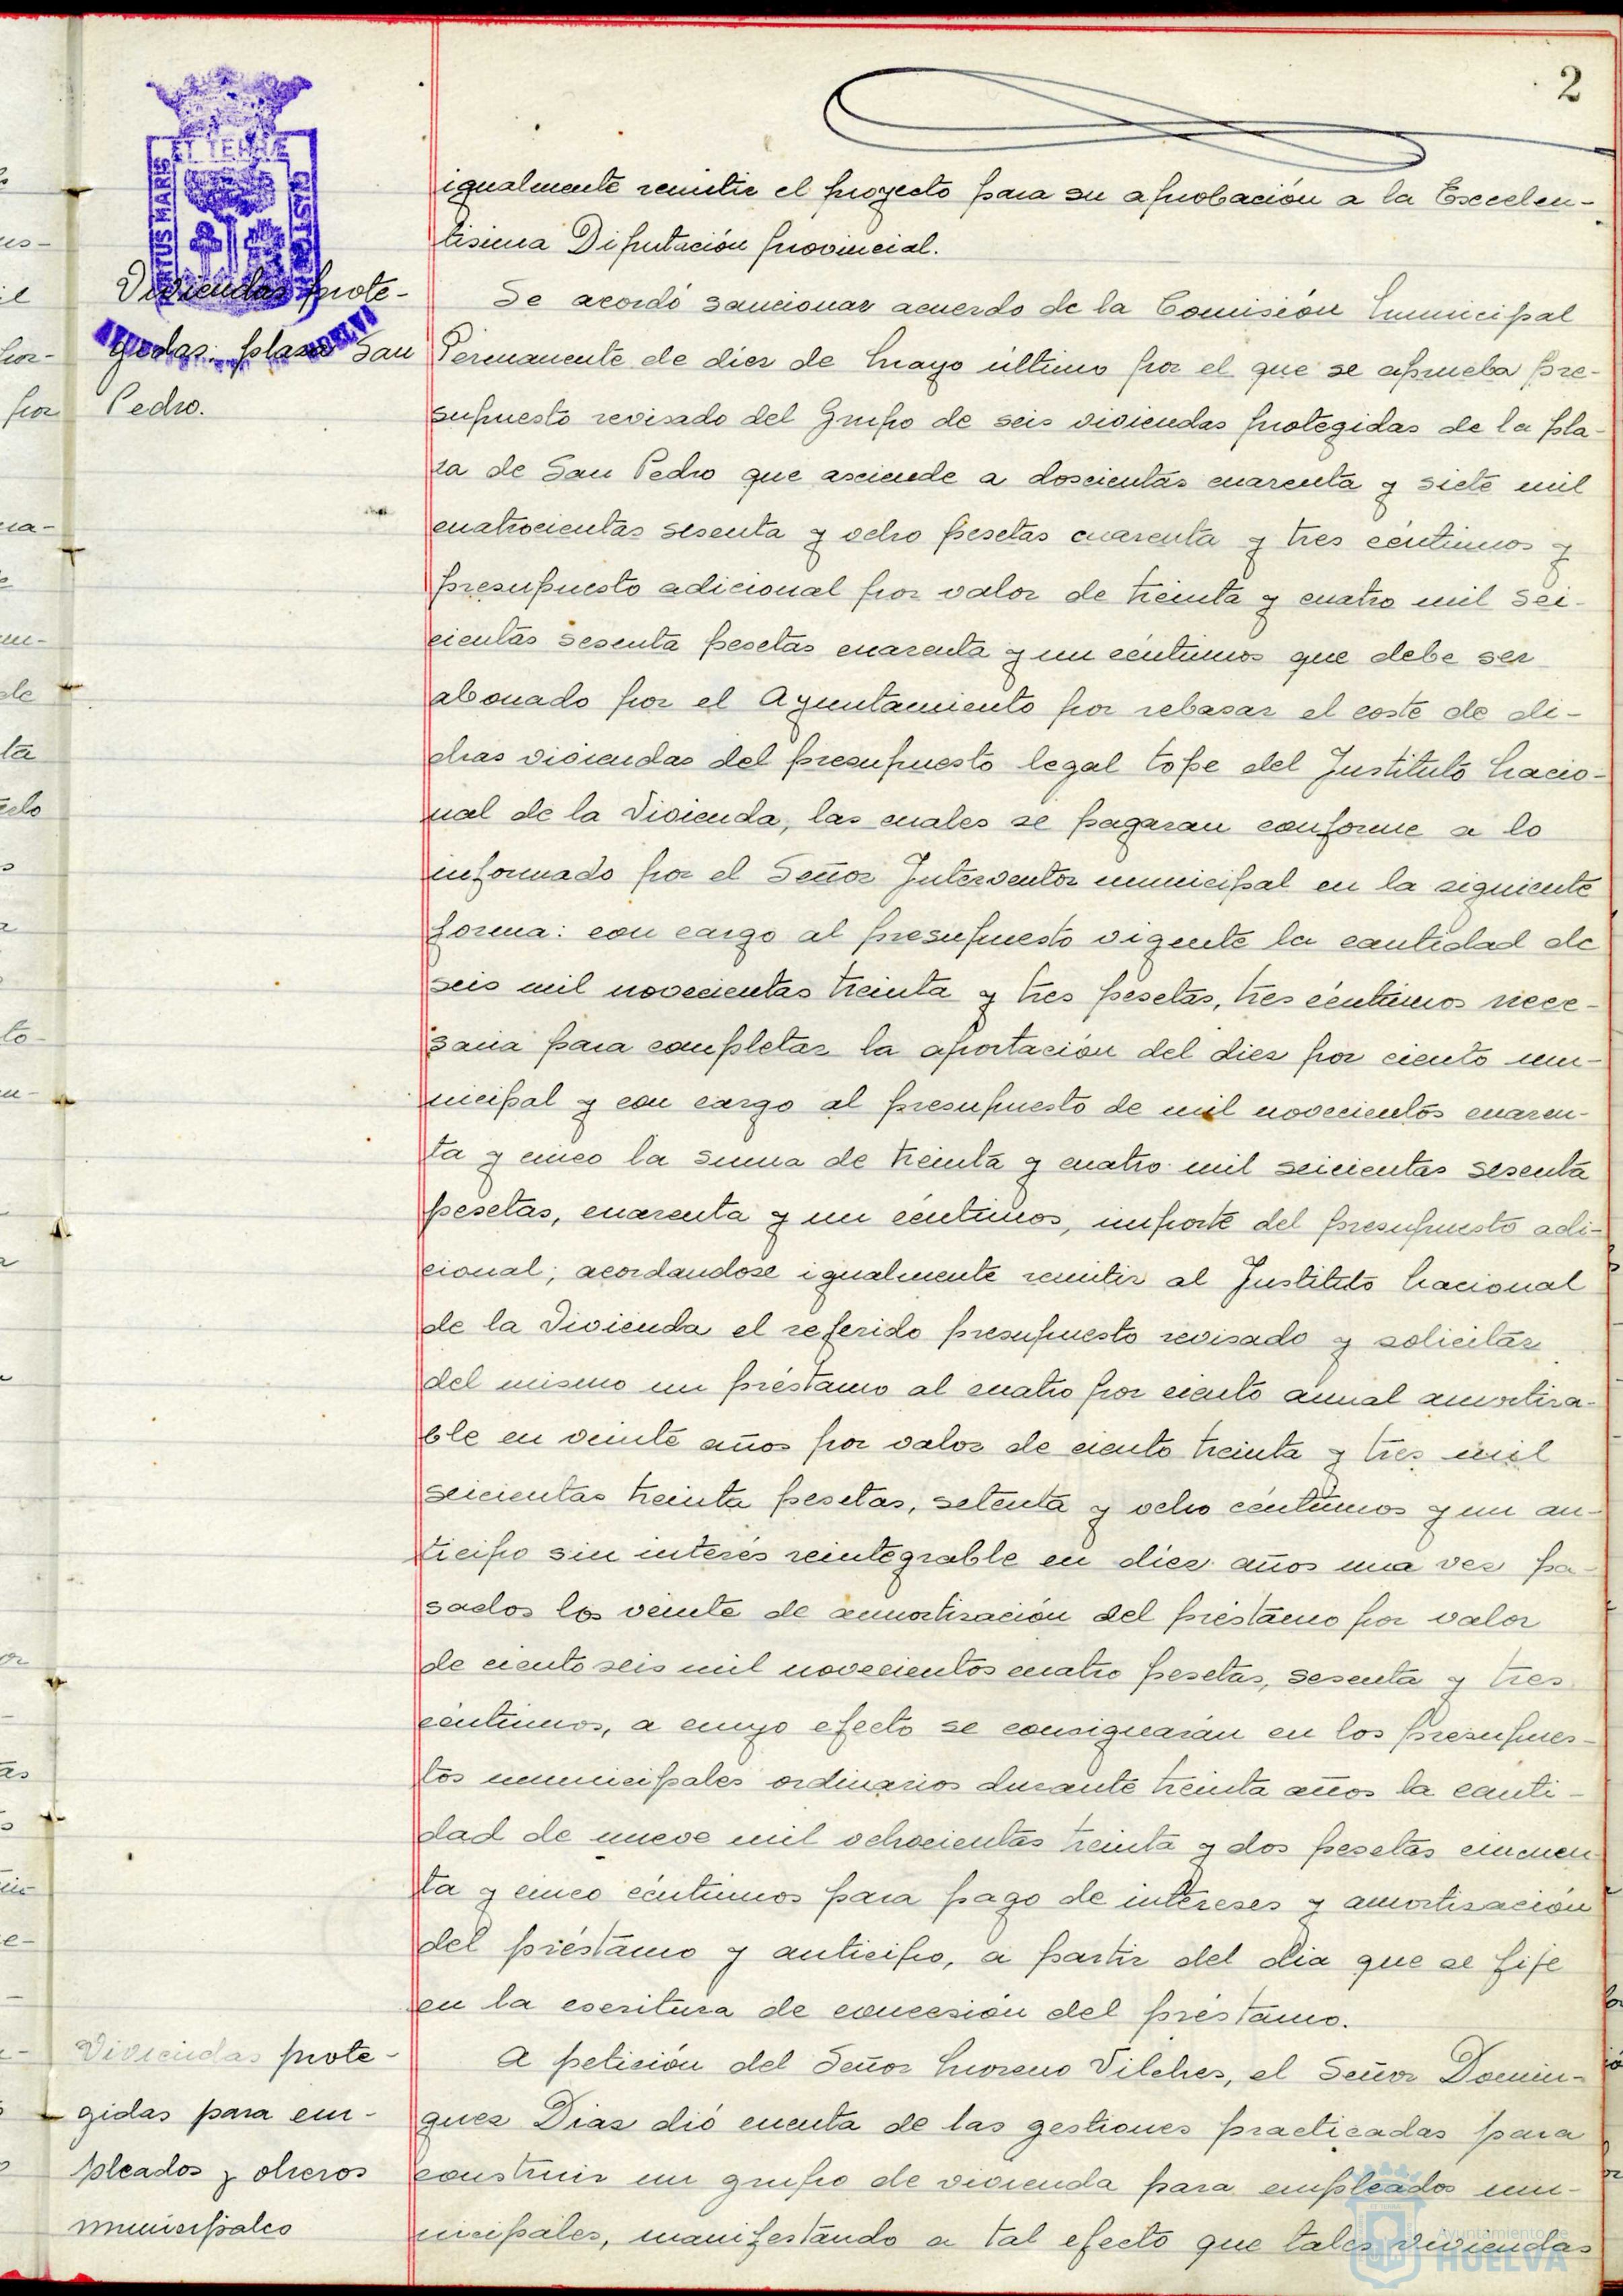 2
ET TERRÆ
PORTUS MARIS
CUSTODIA
igualmente remitir el proyecto para su aprobación a la Excelen-
tisima Diputación provincial.
Viviendas prote-
gidas: plaza San
Pedro.
Se acordó sancionar acuerdo de la Comisión Municipal
Permanente de diez de Mayo último por el que se aprueba pre-
supuesto revisado del Grupo de seis viviendas protegidas de la pla-
za de San Pedro que asciende a doscientas cuarenta y siete mil
cuatrocientas sesenta y ocho pesetas cuarenta y tres céntimos y
presupuesto adicional por valor de treinta y cuatro mil sei-
cientas sesenta pesetas cuarenta y un céntimos que debe ser
abonado por el Ayuntamiento por rebasar el coste de di-
chas viviendas del presupuesto legal tope del Instituto Nacio-
nal de la Vivienda, las cuales se pagaran conforme a lo
informado por el Señor Interventor municipal en la siguiente
forma: con cargo al presupuesto vigente la cantidad de
seis mil novecientas treinta y tres pesetas, tres céntimos nece-
saria para completar la aportación del diez por ciento mu-
nicipal y con cargo al presupuesto de mil novecientos cuaren-
ta y cinco la suma de treinta y cuatro mil seicientas sesenta
pesetas, cuarenta y un céntimos, importe del presupuesto adi-
cional; acordandose igualmente remitir al Instituto Nacional
de la Vivienda el referido presupuesto revisado y solicitar
del mismo un préstamo al cuatro por ciento anual amortiza-
ble en veinte años por valor de ciento treinta y tres mil
seicientas treinta pesetas, setenta y ocho céntimos y un an-
ticipo sin interés reintegrable en diez años una vez pa-
sados los veinte de amortización del préstamo por valor
de ciento seis mil novecientos cuatro pesetas, sesenta y tres
céntimos, a cuyo efecto se consignarán en los presupues-
tos municipales ordinarios durante treinta años la canti-
dad de nueve mil ochocientas treinta y dos pesetas cincuen-
ta y cinco céntimos para pago de intereses y amortización
del préstamo y anticipo, a partir del dia que se fije
en la escritura de concesión del préstamo.
Viviendas prote-
gidas para em-
pleados y obreros
municipales
A petición del Señor Moreno Vilches, el Señor Domin-
guez Diaz dió cuenta de las gestiones practicadas para
construir un grupo de vivienda para empleados mu-
nicipales, manifestando a tal efecto que tales viviendas
Ayuntamiento de
HUELVA